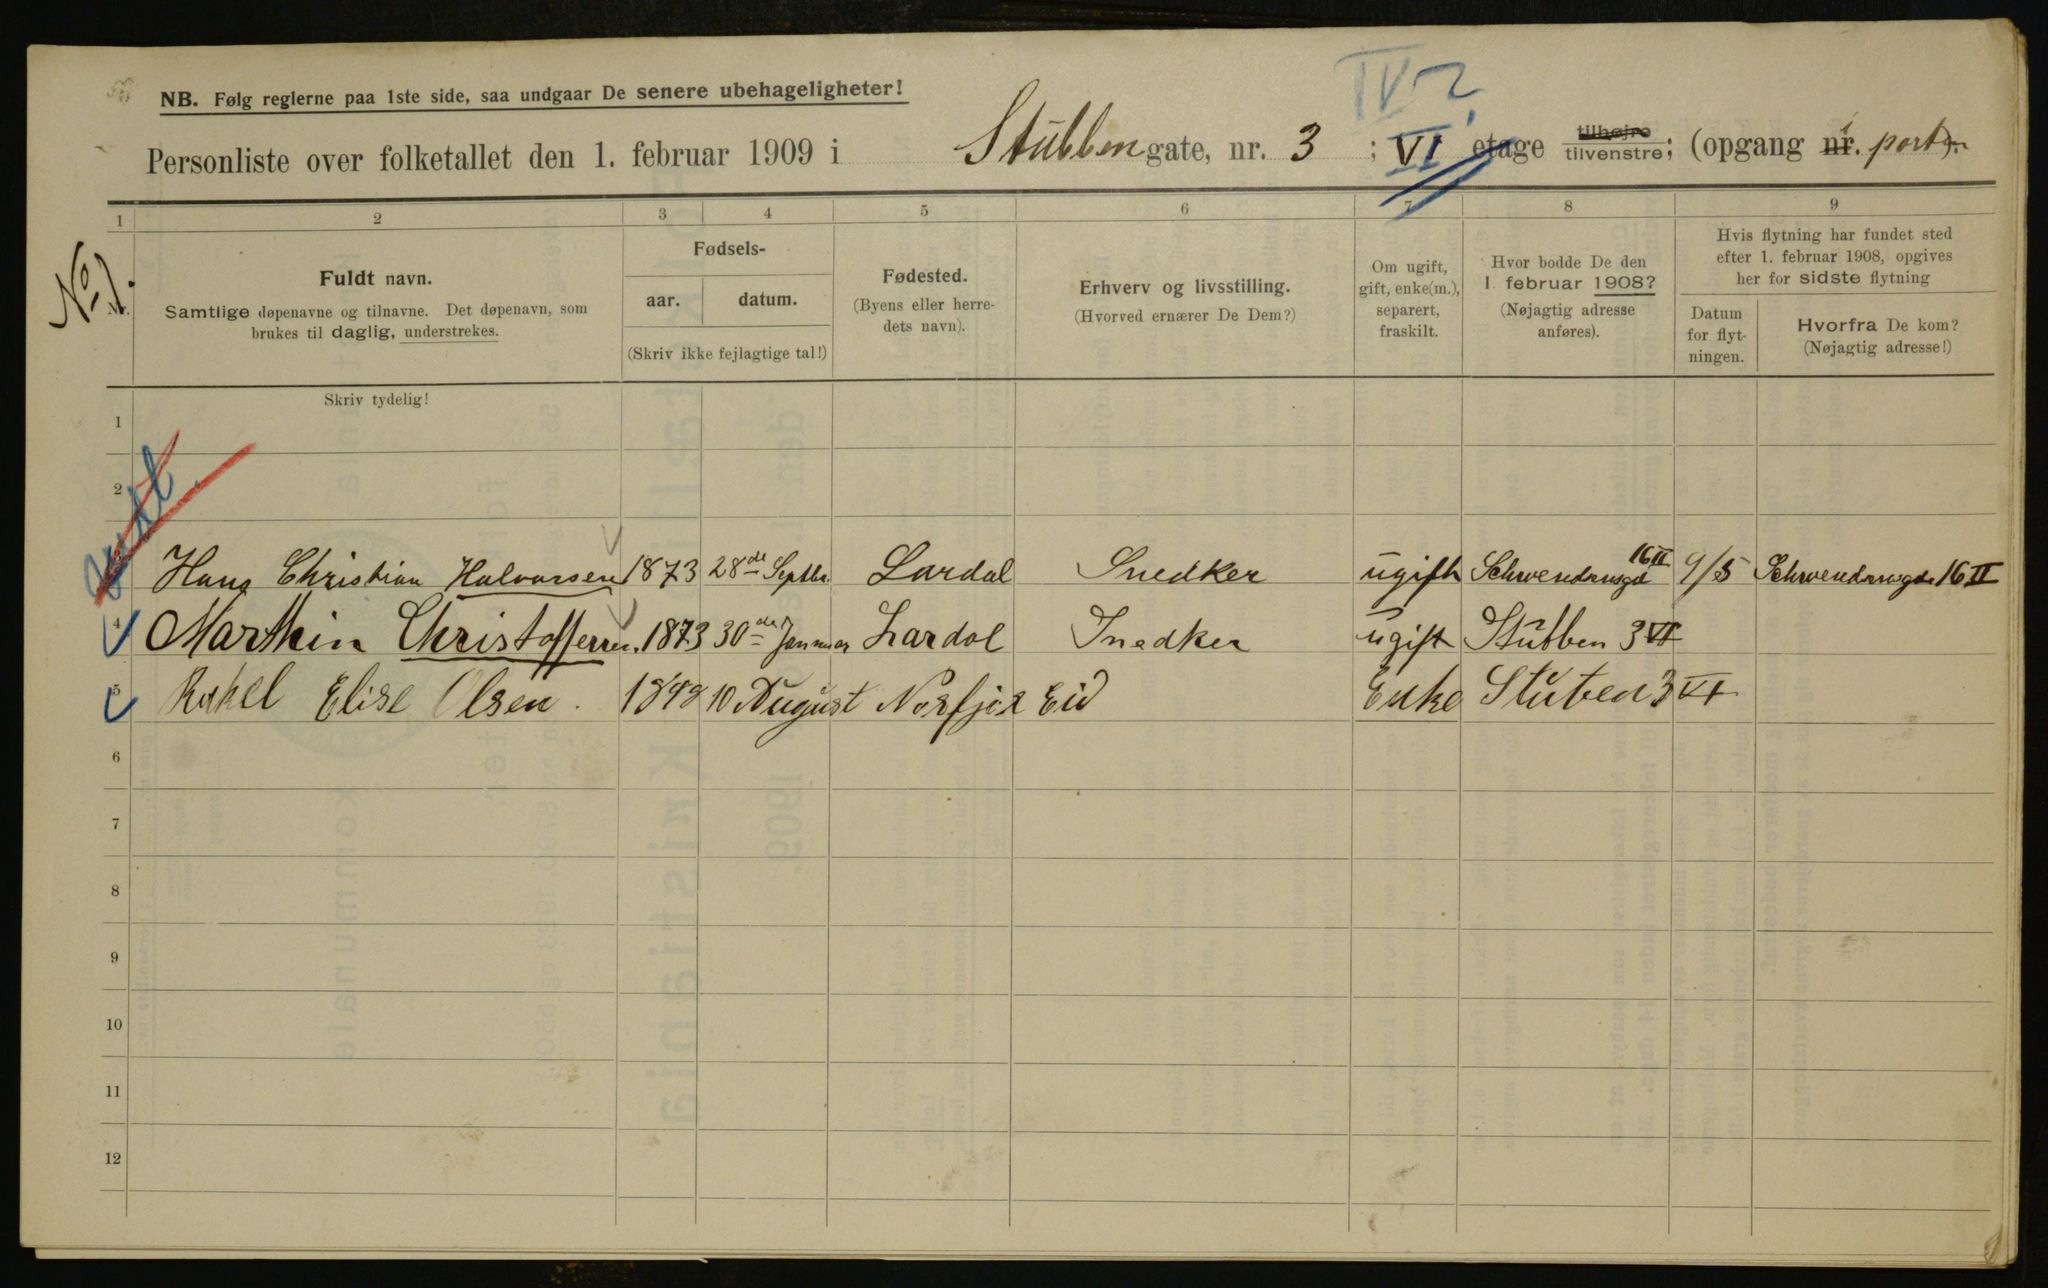 IV ?
NB. Følg reglerne paa 1ste side, saa undgaar De senere ubehageligheter!
Personliste over folketallet den 1. februar 1909 i Stubben gate, nr. 3 ; VI etage tilhøjre tilvenstre; (opgang nr. i porten).
1 2 3 4 5 6 7 8 9
No 1.
Nr.
Fuldt navn.
Samtlige døpenavne og tilnavne. Det døpenavn, som
brukes til daglig, understrekes.
Fødsels-
aar. datum.
(Skriv ikke fejlagtige tal!)
Fødested.
(Byens eller herre-
dets navn).
Erhverv og livsstilling.
(Hvorved ernærer De Dem?)
Om ugift,
gift, enke(m.),
separert,
fraskilt.
Hvor bodde De den
1. februar 1908?
(Nøjagtig adresse
anføres).
Hvis flytning har fundet sted
efter 1. februar 1908, opgives
her for sidste flytning
Datum
for flyt-
ningen.
Hvorfra De kom?
(Nøjagtig adresse!)
Skriv tydelig!
1
2
Hans Christian Halvorsen 1873 28de Septbr. Lardal Snedker ugift Schwendsensgd 16 II 9/5 Schwendsensgde 16 II
4 Marthin Christoffersen. 1873 30de Januar Lardal Snedker ugift Stubben 3 VI
5 Rakel Elise Olsen. 1848 10 August Norfjor Eid Enke Stuben 3 VI
6
7
8
9
10
11
12